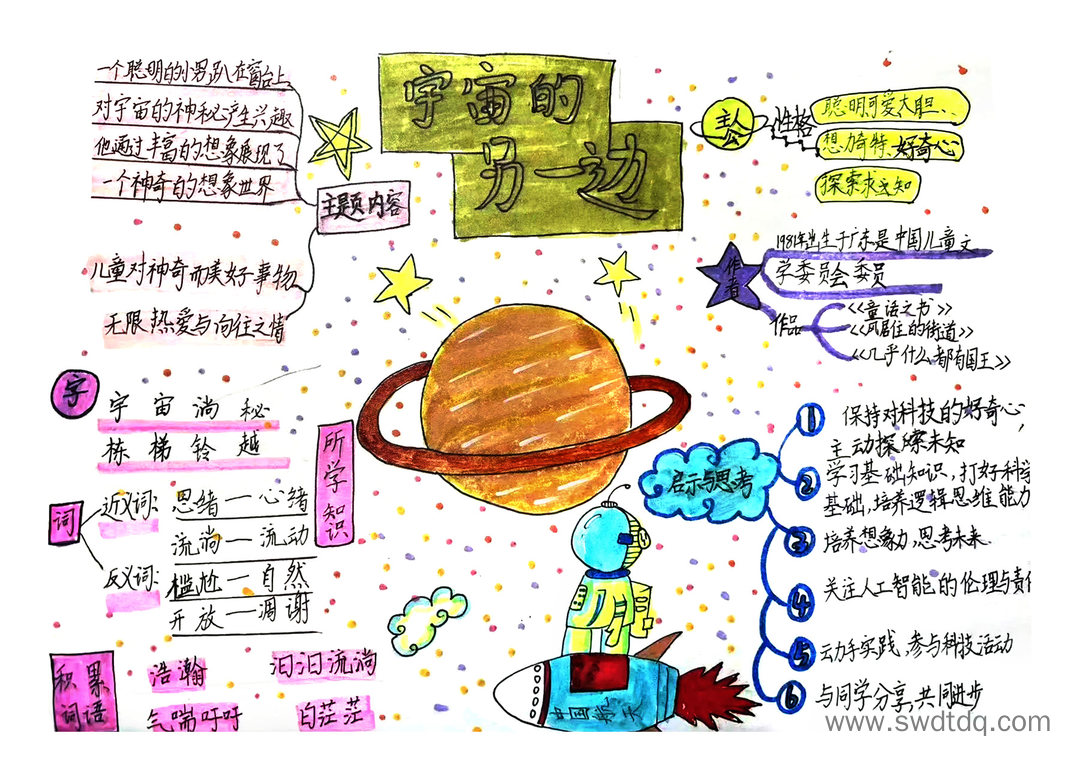 宇宙的
另一边
一个聪明的小男趴在窗台上
对宇宙的神秘产生兴趣
他通过丰富的想象展现了
一个神奇的想象世界
主题内容
儿童对神奇而美好事物
无限热爱与向往之情
主人公
性格
聪明可爱、大胆、
想力奇特、好奇心
探索求知
作者
1981年出生于广东是中国儿童文
学委员会委员
作品
《童话之书》
《居住的街道》
《几乎什么都有国王》
字
宇 宙 淌 秘
栋 梯 铃 越
所学知识
词
近义词:
思绪一心绪
流淌一流动
反义词:
尴尬一自然
开放一凋谢
积累
词语
浩瀚
汩汩流淌
气喘吁吁
白茫茫
启示与思考
1
保持对科技的好奇心,
主动探索未知
2
学习基础知识,打好科学
基础,培养逻辑思维能力
3
培养想象力,思考未来
4
关注人工智能的伦理与责任
5
动手实践,参与科技活动
6
与同学分享,共同进步
中国航天
www.swdtdq.com